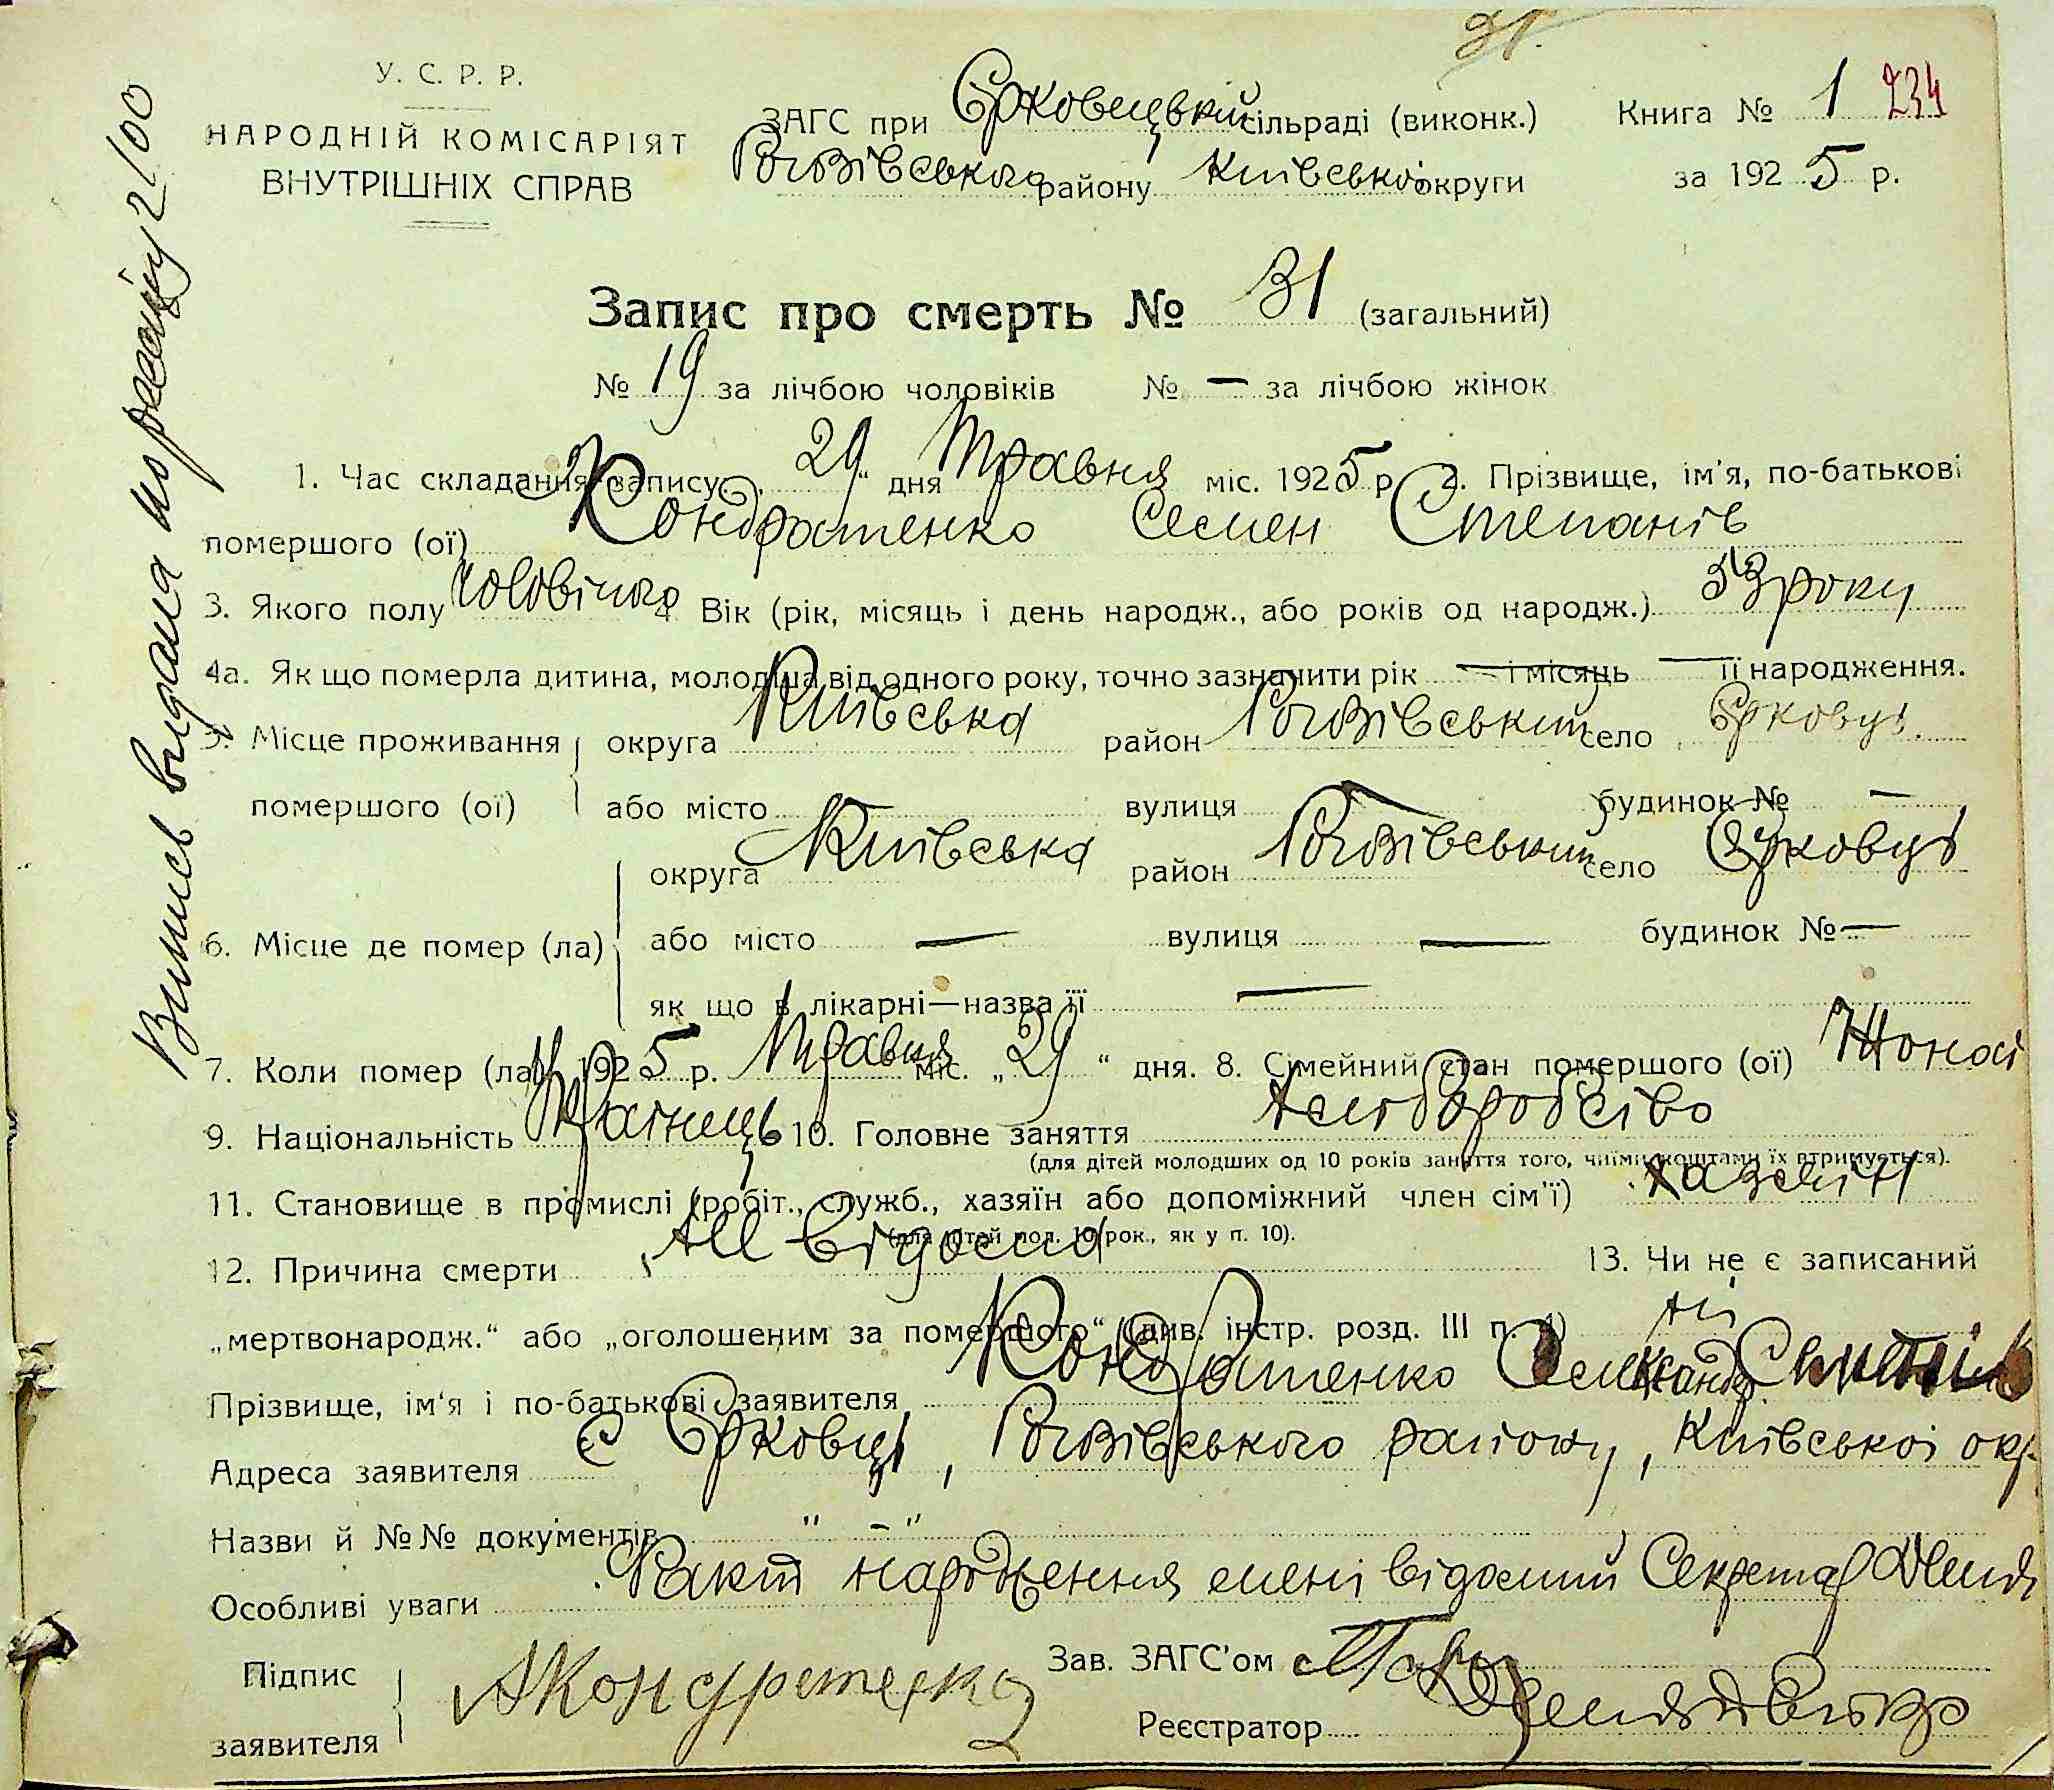 31.
У. С. Р. Р.
НАРОДНІЙ КОМІСАРІЯТ
ВНУТРІШНІХ СПРАВ
ЗАГС при Єрковецькій сільраді (виконк.)
Рогозівського району Київської округи
Книга № 1 234
за 1925 р.
Запис про смерть № 31 (загальний)
№ 19 за лічбою чоловіків № — за лічбою жінок
1. Час складання запису „29“ дня Травня міс. 1925 р. 2. Прізвище, ім'я, по-батькові
помершого (ої) Кондратенко Семен Степанів
3. Якого полу чоловічого 4. Вік (рік, місяць і день народж., або років од народж.) 53 роки
4а. Як що померла дитина, молодша від одного року, точно зазначити рік — і місяць — її народження.
5. Місце проживання округа Київська район Рогозівський село Єрковці
помершого (ої) або місто вулиця — будинок № —
округа Київська район Рогозівський село Єрковці
6. Місце де помер (ла) або місто — вулиця — будинок № —
як що в лікарні—назва її —
7. Коли помер (ла) 1925 р. Травня міс. „29“ дня. 8. Сімейний стан помершого (ої) Жонат
9. Національність Українець 10. Головне заняття Хліборобство
(для дітей молодших од 10 років заняття того, чиїми коштами їх втримується).
11. Становище в промислі (робіт., служб., хазяїн або допоміжний член сім'ї) хазяїн
(для дітей мол. 10 рок., як у п. 10).
12. Причина смерти Не відома 13. Чи не є записаний
„мертвонародж.“ або „оголошеним за помершого“ (див. інстр. розд. III п. 4) Ні
Прізвище, ім'я і по-батькові заявителя Кондратенко Олександр
Адреса заявителя с Єрковці, Рогозівського району, Київської окр.
Назви й №№ документів " – "
Особливі уваги Факт народження мені відомий Секретар
Підпис
заявителя АКондратенко
Зав. ЗАГС'ом
Реєстратор
Випись видана на росписку 2/00